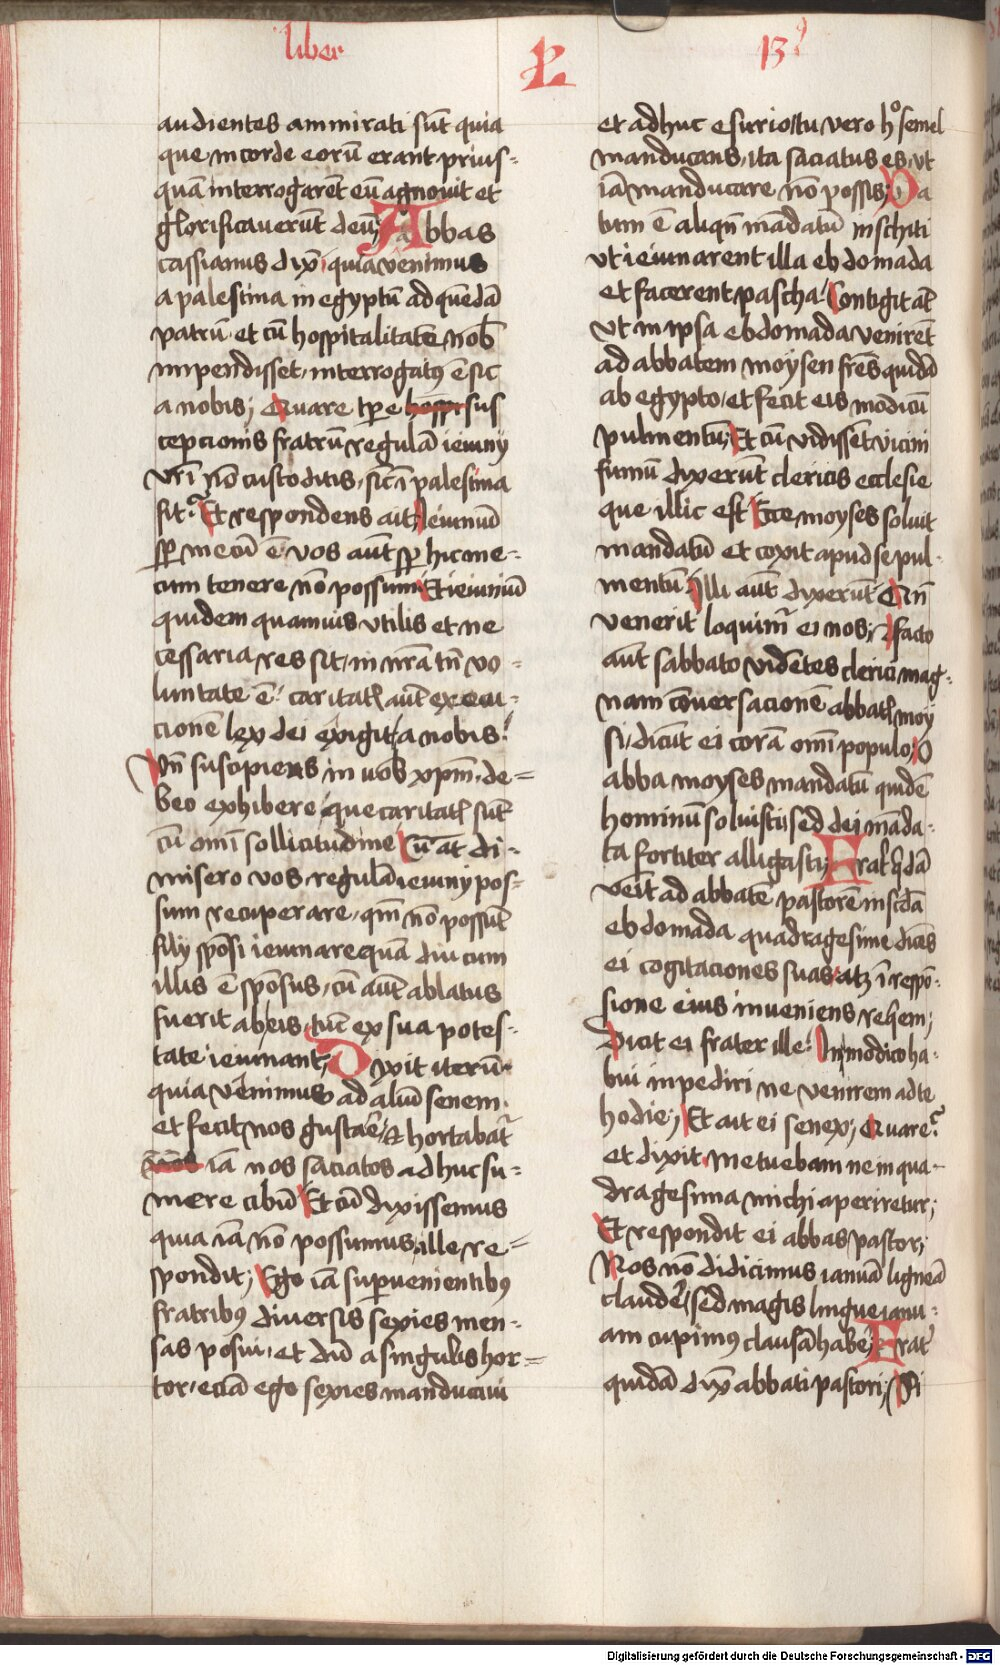 liber
13ꝰ
audientes ammirati sūt quia
que in corde eorū erant prius-
quā interrogarēt eū agnouit et
glorificauerūt deū; Abbas
cassianus dix̄ quia venimus
a palestina in egyptū ad quēdā
patrū et cū hospitalitatē nob̄
impendisset interrogatꝰ ē sic
a nobis; Quare tp̄e sus
cepcionis fratrū regulā ieiunij
vr̄i nō custoditis, sic̄ ī palestina
fit? Et respondens ait; Ieiuniū
sp̄ mecū ē vos aūt sp̄ hic me-
cum tenere nō possum Et ieiuniū
quidem quamuis vtilis et ne
cessaria res sit, in nr̄a tn̄ vo-
luntate ē caritatꝭ aūt execu-
cionē lex dei exigit a nobis!
Vn̄ suscipiens in uob̄ xp̄m de=
beo exhibere que caritatꝭ sūt
cū om̄i sollicitudine Cū at̄ di-
misero vos regulā ieiunij pos-
sum recuperare, qm̄ nō possūt
filij spōsi ieiunare quā diu cum
illis ē spōsus, cū aūt ablatus
fuerit ab eis, tūc ex sua potes-
tate ieiunant; Dixit iterū
quia venimus ad aliū senem
et fecit nos gustare, et hortabat̉
iā nos saciatos adhuc su-
mere cibū Et cū dixissemus
quia iā nō possumus, ille re=
spondit; Ego iā supuenientibꝰ
fratribꝰ diuersis sexies men-
sas posui, et dū a singulis hor=
tor, eciā ego sexies manducaui
et adhuc esurio, tu vero hͦ semel
manducans, ita saciatus es, vt
iā manducare nō possis; Da
tum ē aliqn̄ mādatū in schiti
vt ieiunarent illa ebdomada
et facerent pascha! Contigit āt
vt in ipsa ebdomada venirēt
ad abbatem moysen frēs quidā
ab egypto, et fecit eis modicū
pulmentū; Et cū vidissēt vicini
fumū dixerūt clericis ecclesie
que illic est Ecce moyses soluit
mandatū et coxit apud se pul-
mentū; Illi aūt dixerūt Qn̄
venerit loquim̉ ei nos; Facto
aūt sabbato vidētes clerici mag-
nam cōuersacionē abbatꝭ moy
si, dicūt ei corā om̄i populo; O
abba moyses mandatū quidē
hominū soluisti, sed dei māda-
ta fortiter alligasti; Frat̉ qdā
venīt ad abbatē pastorē in scd̄a
ebdomada quadragesime dicēs
ei cogitaciones suas, atqꝫ ī respō-
sione eius inueniens reꝗem;
Dicit ei frater ille! In modico ha-
bui impediri ne venirem ad te
hodie; Et ait ei senex; Quare?
et dixit, metuebam ne in qua-
dragesima michi aperiretur;
Et respondit ei abbas pastor;
Nos nō didicimus ianuā ligneā
claudere, sed magis lingue ianu-
am cupimꝰ clausā habē; Frat̉
quidā dix̄ abbati pastori; Si